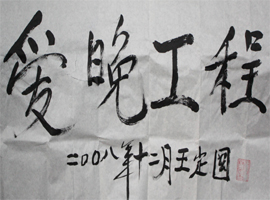 爱晚工程
二〇〇八年十二月王定国